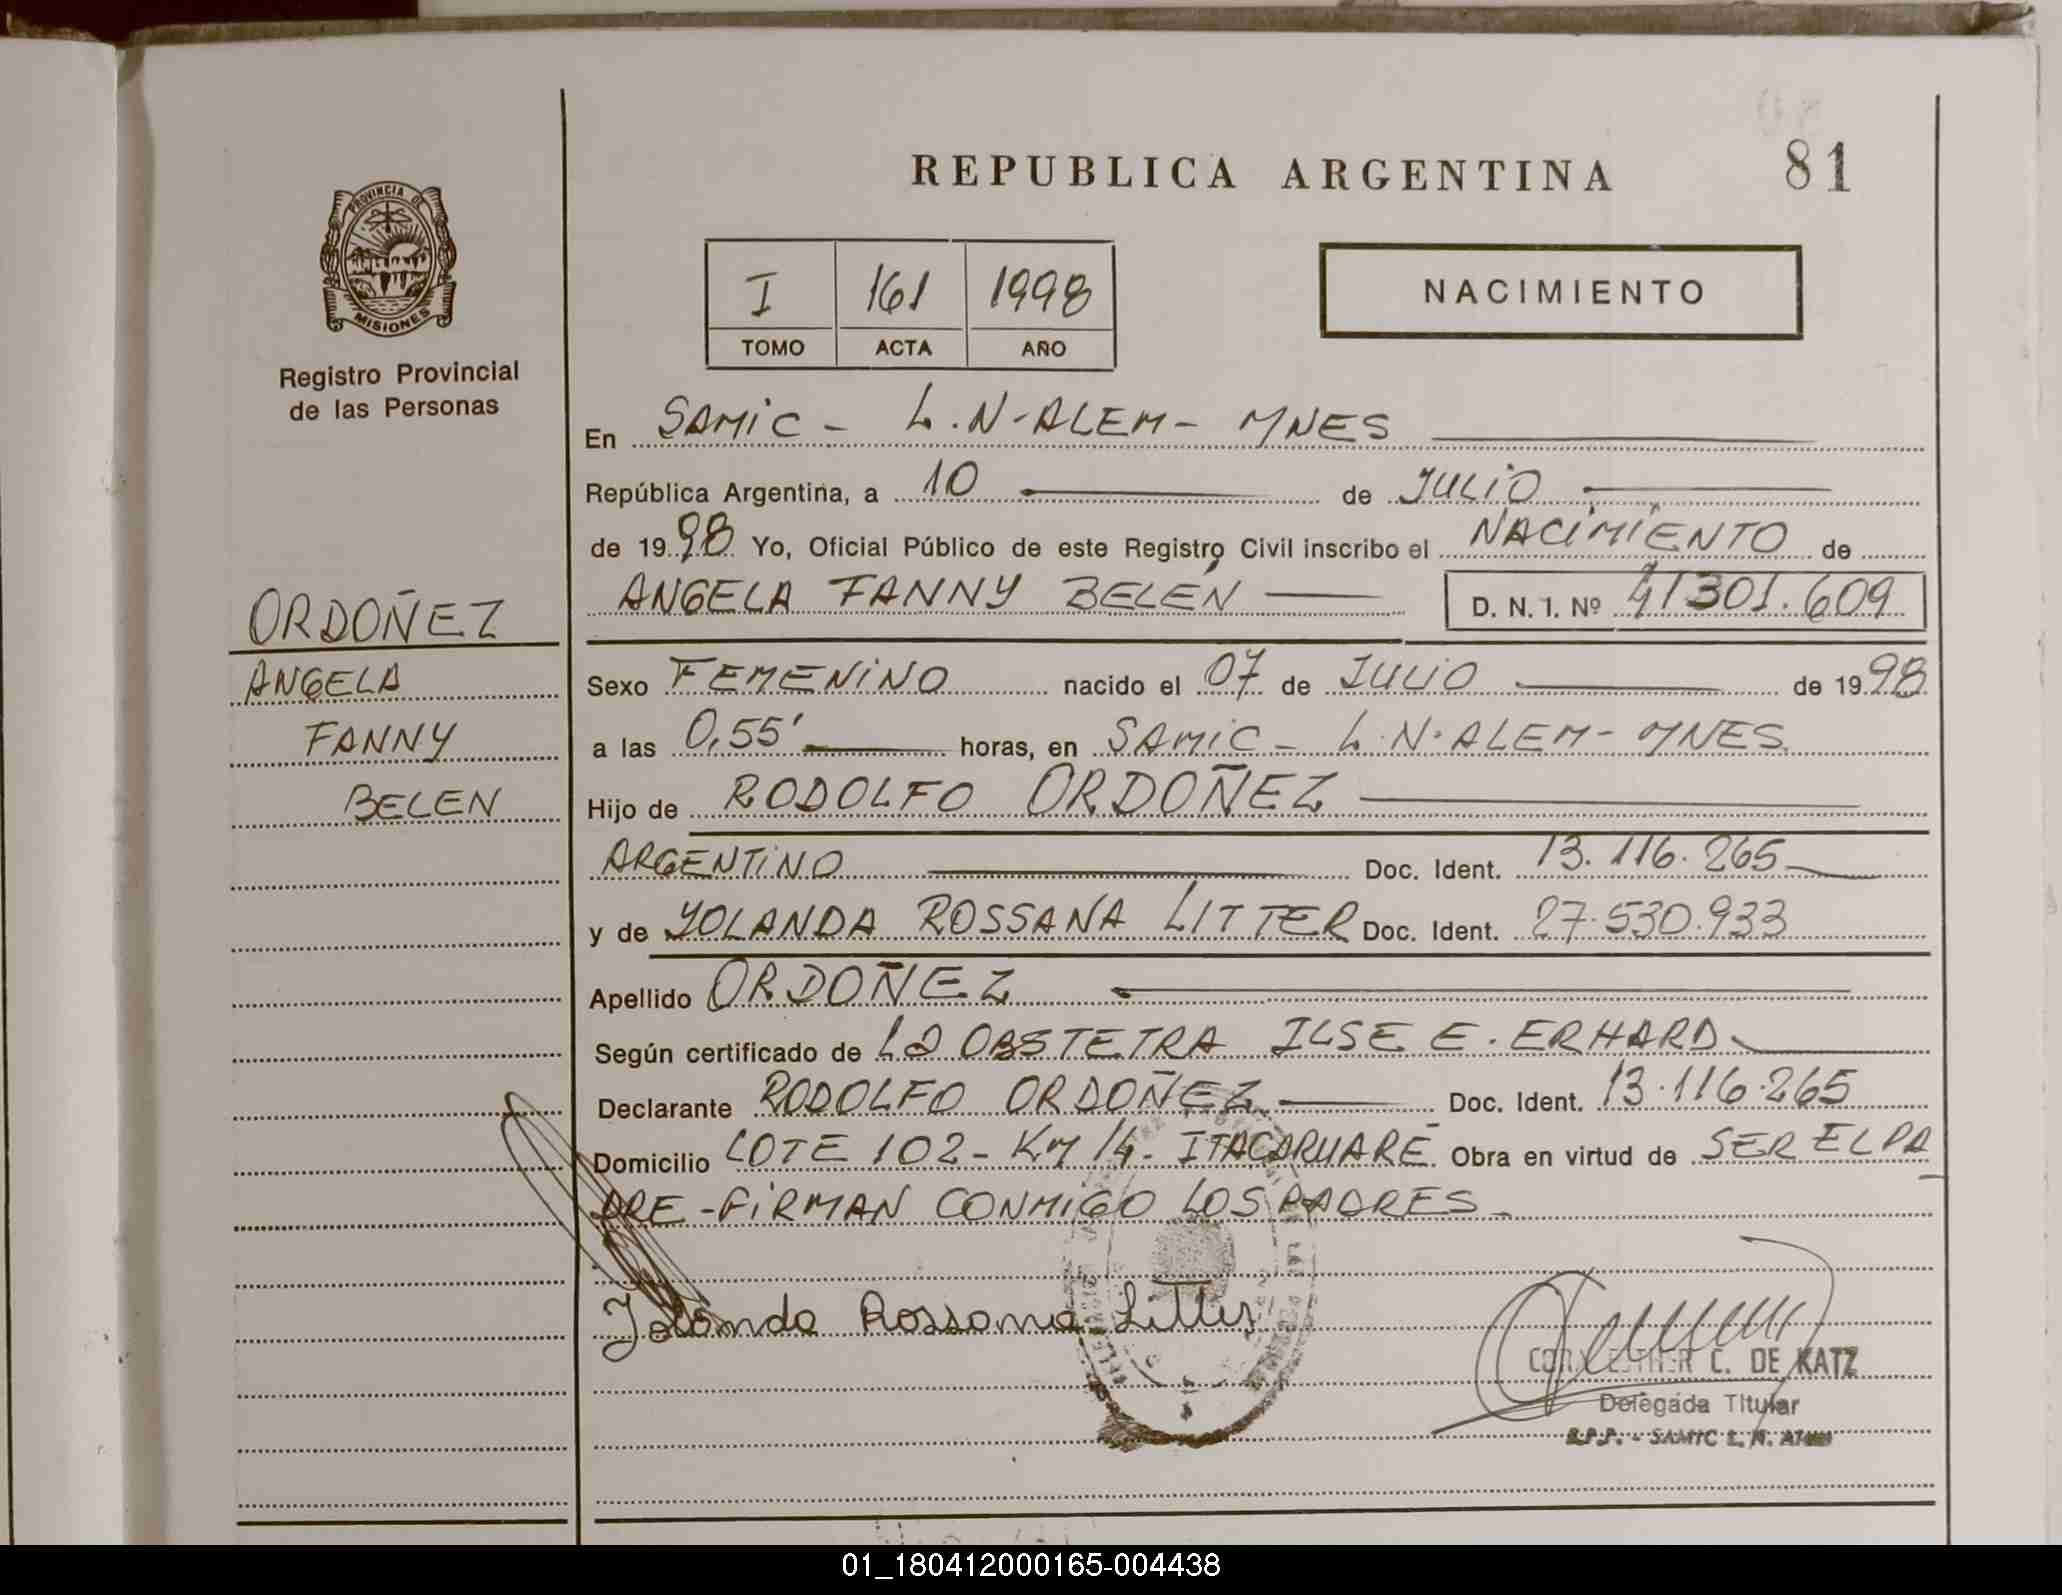 REPUBLICA ARGENTINA
81
PROVINCIA DE
MISIONES
Registro Provincial
de las Personas
I 161 1998
TOMO ACTA AÑO
NACIMIENTO
En SAMIC - L.N-ALEM- MNES
República Argentina, a 10 de JULIO
de 1998 Yo, Oficial Público de este Registro Civil inscribo el NACIMIENTO de
ANGELA FANNY BELÉN D. N. I. Nº 41301.609
ORDOÑEZ
ANGELA
FANNY
BELEN
Sexo FEMENINO nacido el 07 de JULIO de 1998
a las 0,55' horas, en SAMIC - L.N.ALEM- MNES
Hijo de RODOLFO ORDOÑEZ
ARGENTINO Doc. Ident. 13.116.265
y de YOLANDA ROSSANA LITTER Doc. Ident. 27.530.933
Apellido ORDOÑEZ
Según certificado de LA OBSTETRA ILSE E. ERHARD
Declarante RODOLFO ORDOÑEZ Doc. Ident. 13.116.265
Domicilio LOTE 102 - KM 14 - ITACARUARE Obra en virtud de SER EL PA
DRE - FIRMAN CONMIGO LOS PADRES
Yolanda Rossana Litter
ESTHER C. DE KATZ
Delegada Titular
R.P.P. - SAMIC L. N. ALEM
01_180412000165-004438